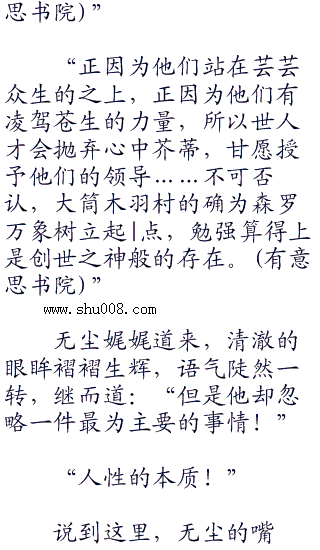 思书院)”
“正因为他们站在芸芸
众生的之上，正因为他们有
凌驾苍生的力量，所以世人
才会抛弃心中芥蒂，甘愿授
予他们的领导……不可否
认，大筒木羽村的确为森罗
万象树立起|点，勉强算得上
是创世之神般的存在。(有意
思书院)”
www.shu008.com
无尘娓娓道来，清澈的
眼眸褶褶生辉，语气陡然一
转，继而道：“但是他却忽
略一件最为主要的事情！”
“人性的本质！”
说到这里，无尘的嘴